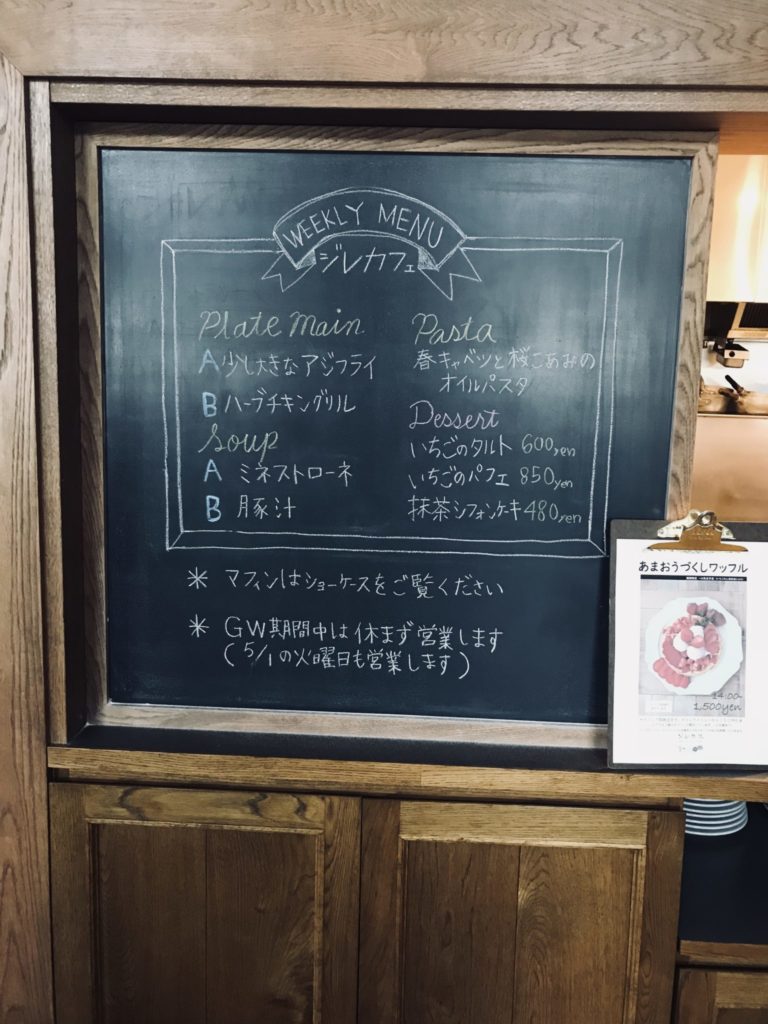 WEEKLY MENU
ジレカフェ
Plate Main
A 少し大きなアジフライ
B ハーブチキングリル
Soup
A ミネストローネ
B 豚汁
Pasta
春キャベツと桜こあみの
オイルパスタ
Dessert
いちごのタルト 600yen
いちごのパフェ 850yen
抹茶シフォンケーキ 480yen
* マフィンはショーケースをご覧ください
* GW期間中は休まず営業します
(5/1の火曜日も営業します)
あまおうづくしワッフル
14:00-
1,500yen